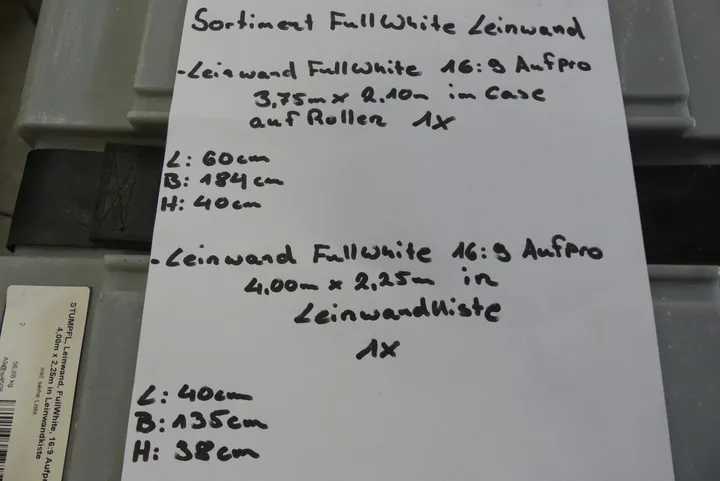 Sortiment FullWhite Leinwand
-Leinwand FullWhite 16:9 Aufpro
3,75m x 2.10m im Case
auf Rollen 1x
L: 60cm
B: 184cm
H: 40cm
-Leinwand FullWhite 16:9 Aufpro
4,00m x 2,25m in
Leinwandkiste
1x
L: 40cm
B: 135cm
H: 38cm
STUMPFL, Leinwand, FullWhite, 16:9 Aufpr
4,00m x 2,25m in Leinwandkiste
inkl. siehe Liste
2